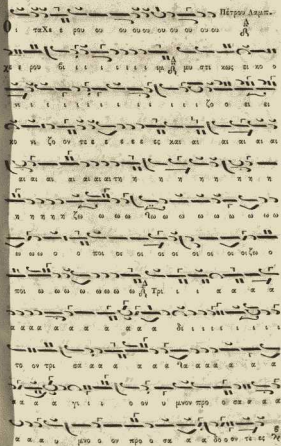 Πέτρου Λαμπ.
Οι τα Χε ε ρου ου ου ου ου ου ου ου
χε ε ρου βι ι ι ι ι ι ι ιμ μυ στι κως ει κο ο
νι ι ι ι ι ι ι ι ι ι ζο ο ει ει
κο νι ζο ον τε ε ε ε ε ες και αι αι αι αι
αι αι αι αι αι αι τη η η η η η
η η η η ζω ω ω ω ω ω ω ω ω ω ω
ω ω ω ο ο ποι οι οι οι οι οι οι οι ζω ο
ποι ω ω ω ω ω Τρι ι ι α α α α
α α α α α α α α α δι ι ι ι ι ι ι
το ον τρι σα α α α α α α α α α α
α α α α γι ι ι ο ον υ μνον προ ο σα α α
α α α υ μνο ο ον προ ο σα α δο ον τε ες